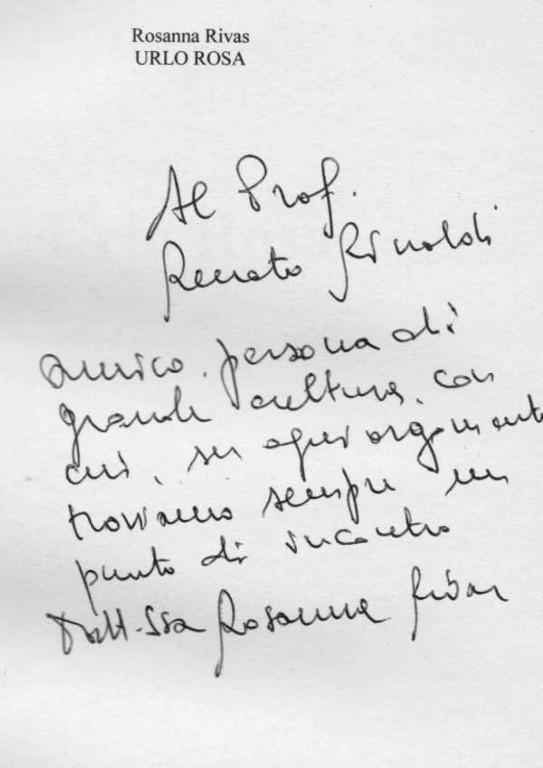 Rosanna Rivas
URLO ROSA
Al Prof.
Renato Rinaldi
amico, persona di
grande cultura, con
cui, su ogni argomento
troviamo sempre un
punto di incontro
Dott.ssa Rosanna Rivas